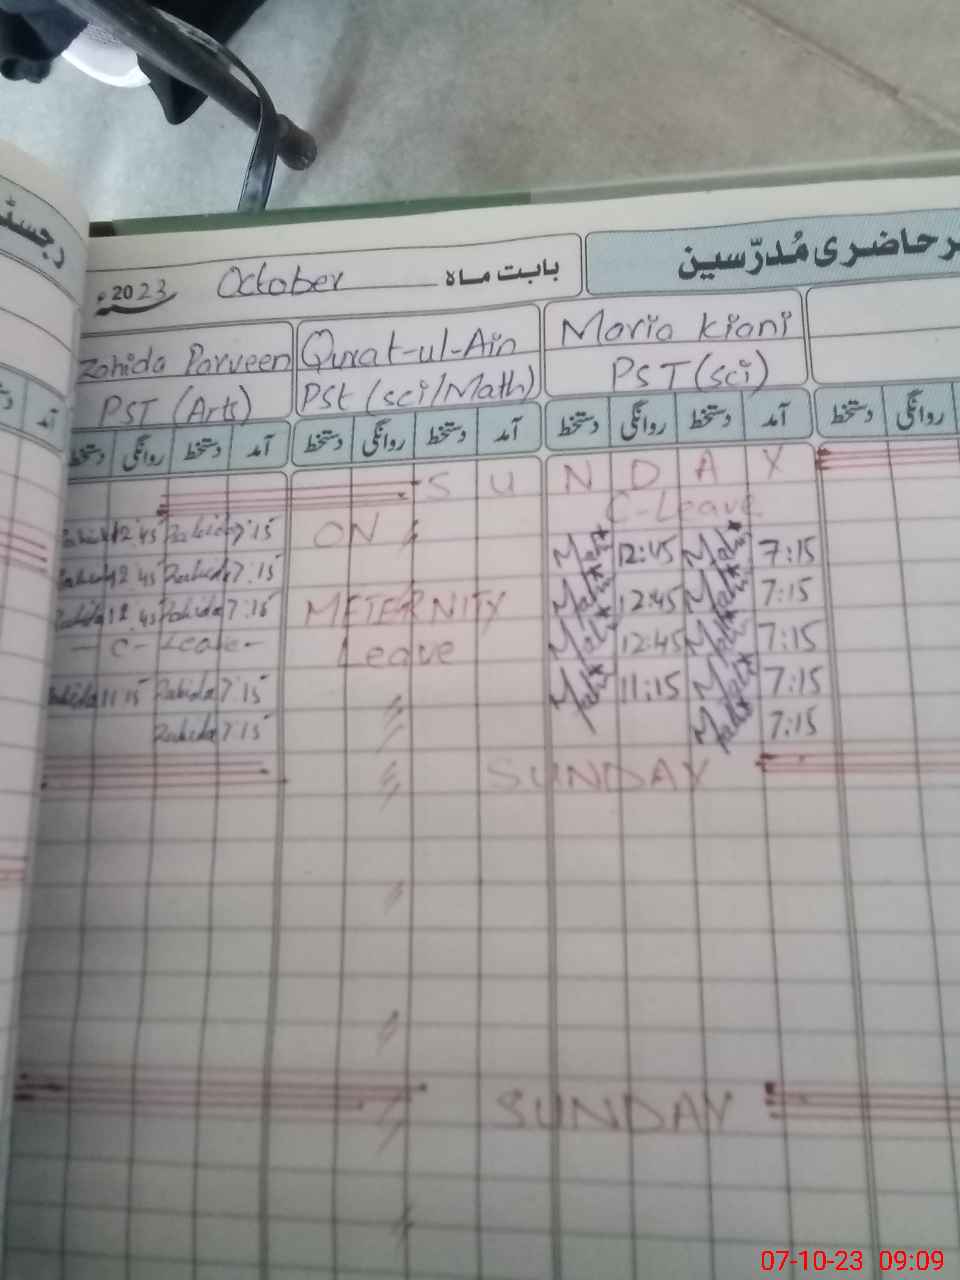 رجسٹر
حاضری مُدرّسین
بابت ماہ October 2023ء
Zahida Parveen Qurat-ul-Ain Maria Kiani
PST (Arts) PSt (sci/Math) PST (sci)
آمد دستخط روانگی دستخط آمد دستخط روانگی دستخط آمد دستخط روانگی دستخط روانگی دستخط
آمد
SUNDAY
C-Leave
12:45 Zahida 7:15 ON 12:45 7:15
Zahida 12:45 Zahida 7:15 12:45 7:15
Zahida 12:45 Zahida 7:15 METERNITY 12:45 7:15
- C - Leave - Leave 11:15 7:15
Zahida 11:15 Zahida 7:15 7:15
Zahida 7:15
SUNDAY
SUNDAY
07-10-23 09:09